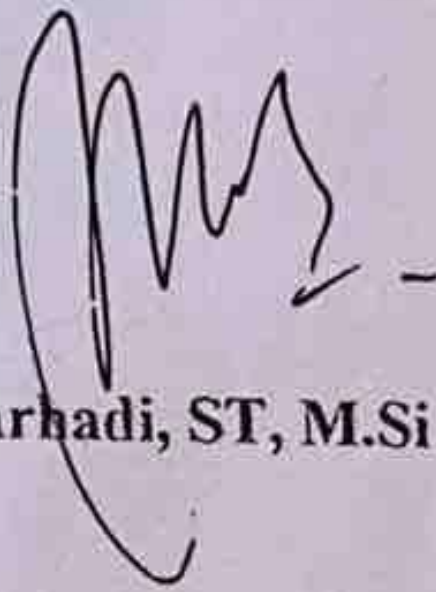 rhadi, ST, M.Si